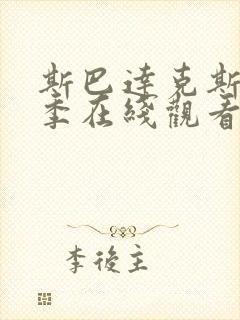 斯巴達克斯
季在綫觀看
李後主